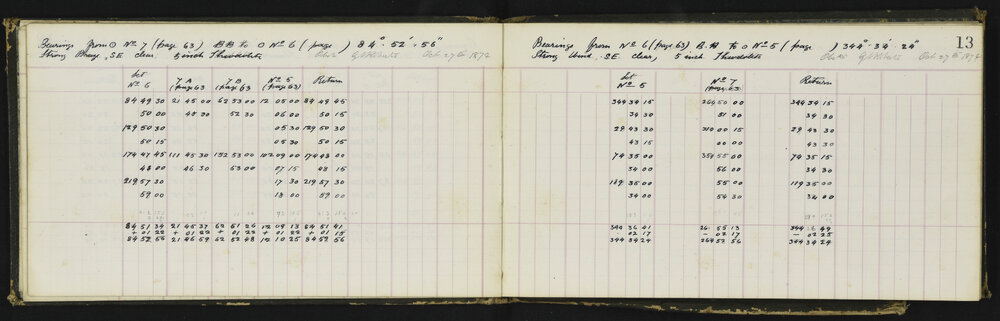 Bearings from ⊙ Nº 7 (page 63) BB to ⊙ Nº 6 (page ) 84°. 52'. 56"
Strong Breeze, SE clear, 5 inch Theodolite Obsr Oct 27th 1874
Set Nº 6 7A (page 63) 7B (page 63) Nº 5 (page 63) Return
84 49 30 21 45 00 62 53 00 12 05 00 84 49 45
50 00 45 30 52 30 05 00 50 15
129 50 30 05 30 129 50 30
50 15 05 30 50 15
174 47 45 111 45 30 152 53 00 102 09 00 174 48 00
48 00 46 30 53 00 07 15 48 15
219 57 30 17 30 219 57 30
59 00 18 00 59 00
84 51 34 21 45 37 62 51 26 12 09 13 84 51 41
+ 01 22 + 01 22 + 01 22 + 01 22 + 01 15
84 52 56 21 46 59 62 52 48 12 10 25 84 52 56
13
Bearings from Nº 6 (page 63) B.B. to ⊙ Nº 5 (page ) 344°. 34'. 24"
Strong Wind, SE. clear, 5 inch Theodolite Obsr Oct 27th 1874
Set Nº 5 Nº 7 (page 63) Return
344 34 15 264 50 00 344 34 15
34 30 51 00 34 30
29 43 30 310 00 15 29 43 30
43 15 00 00 43 30
74 35 00 354 55 00 74 35 15
34 00 56 00 34 30
119 35 00 55 00 119 35 00
34 00 54 30 34 00
344 36 41 264 55 13 344 36 49
- 02 17 - 02 17 - 02 25
344 34 24 264 52 56 344 34 24